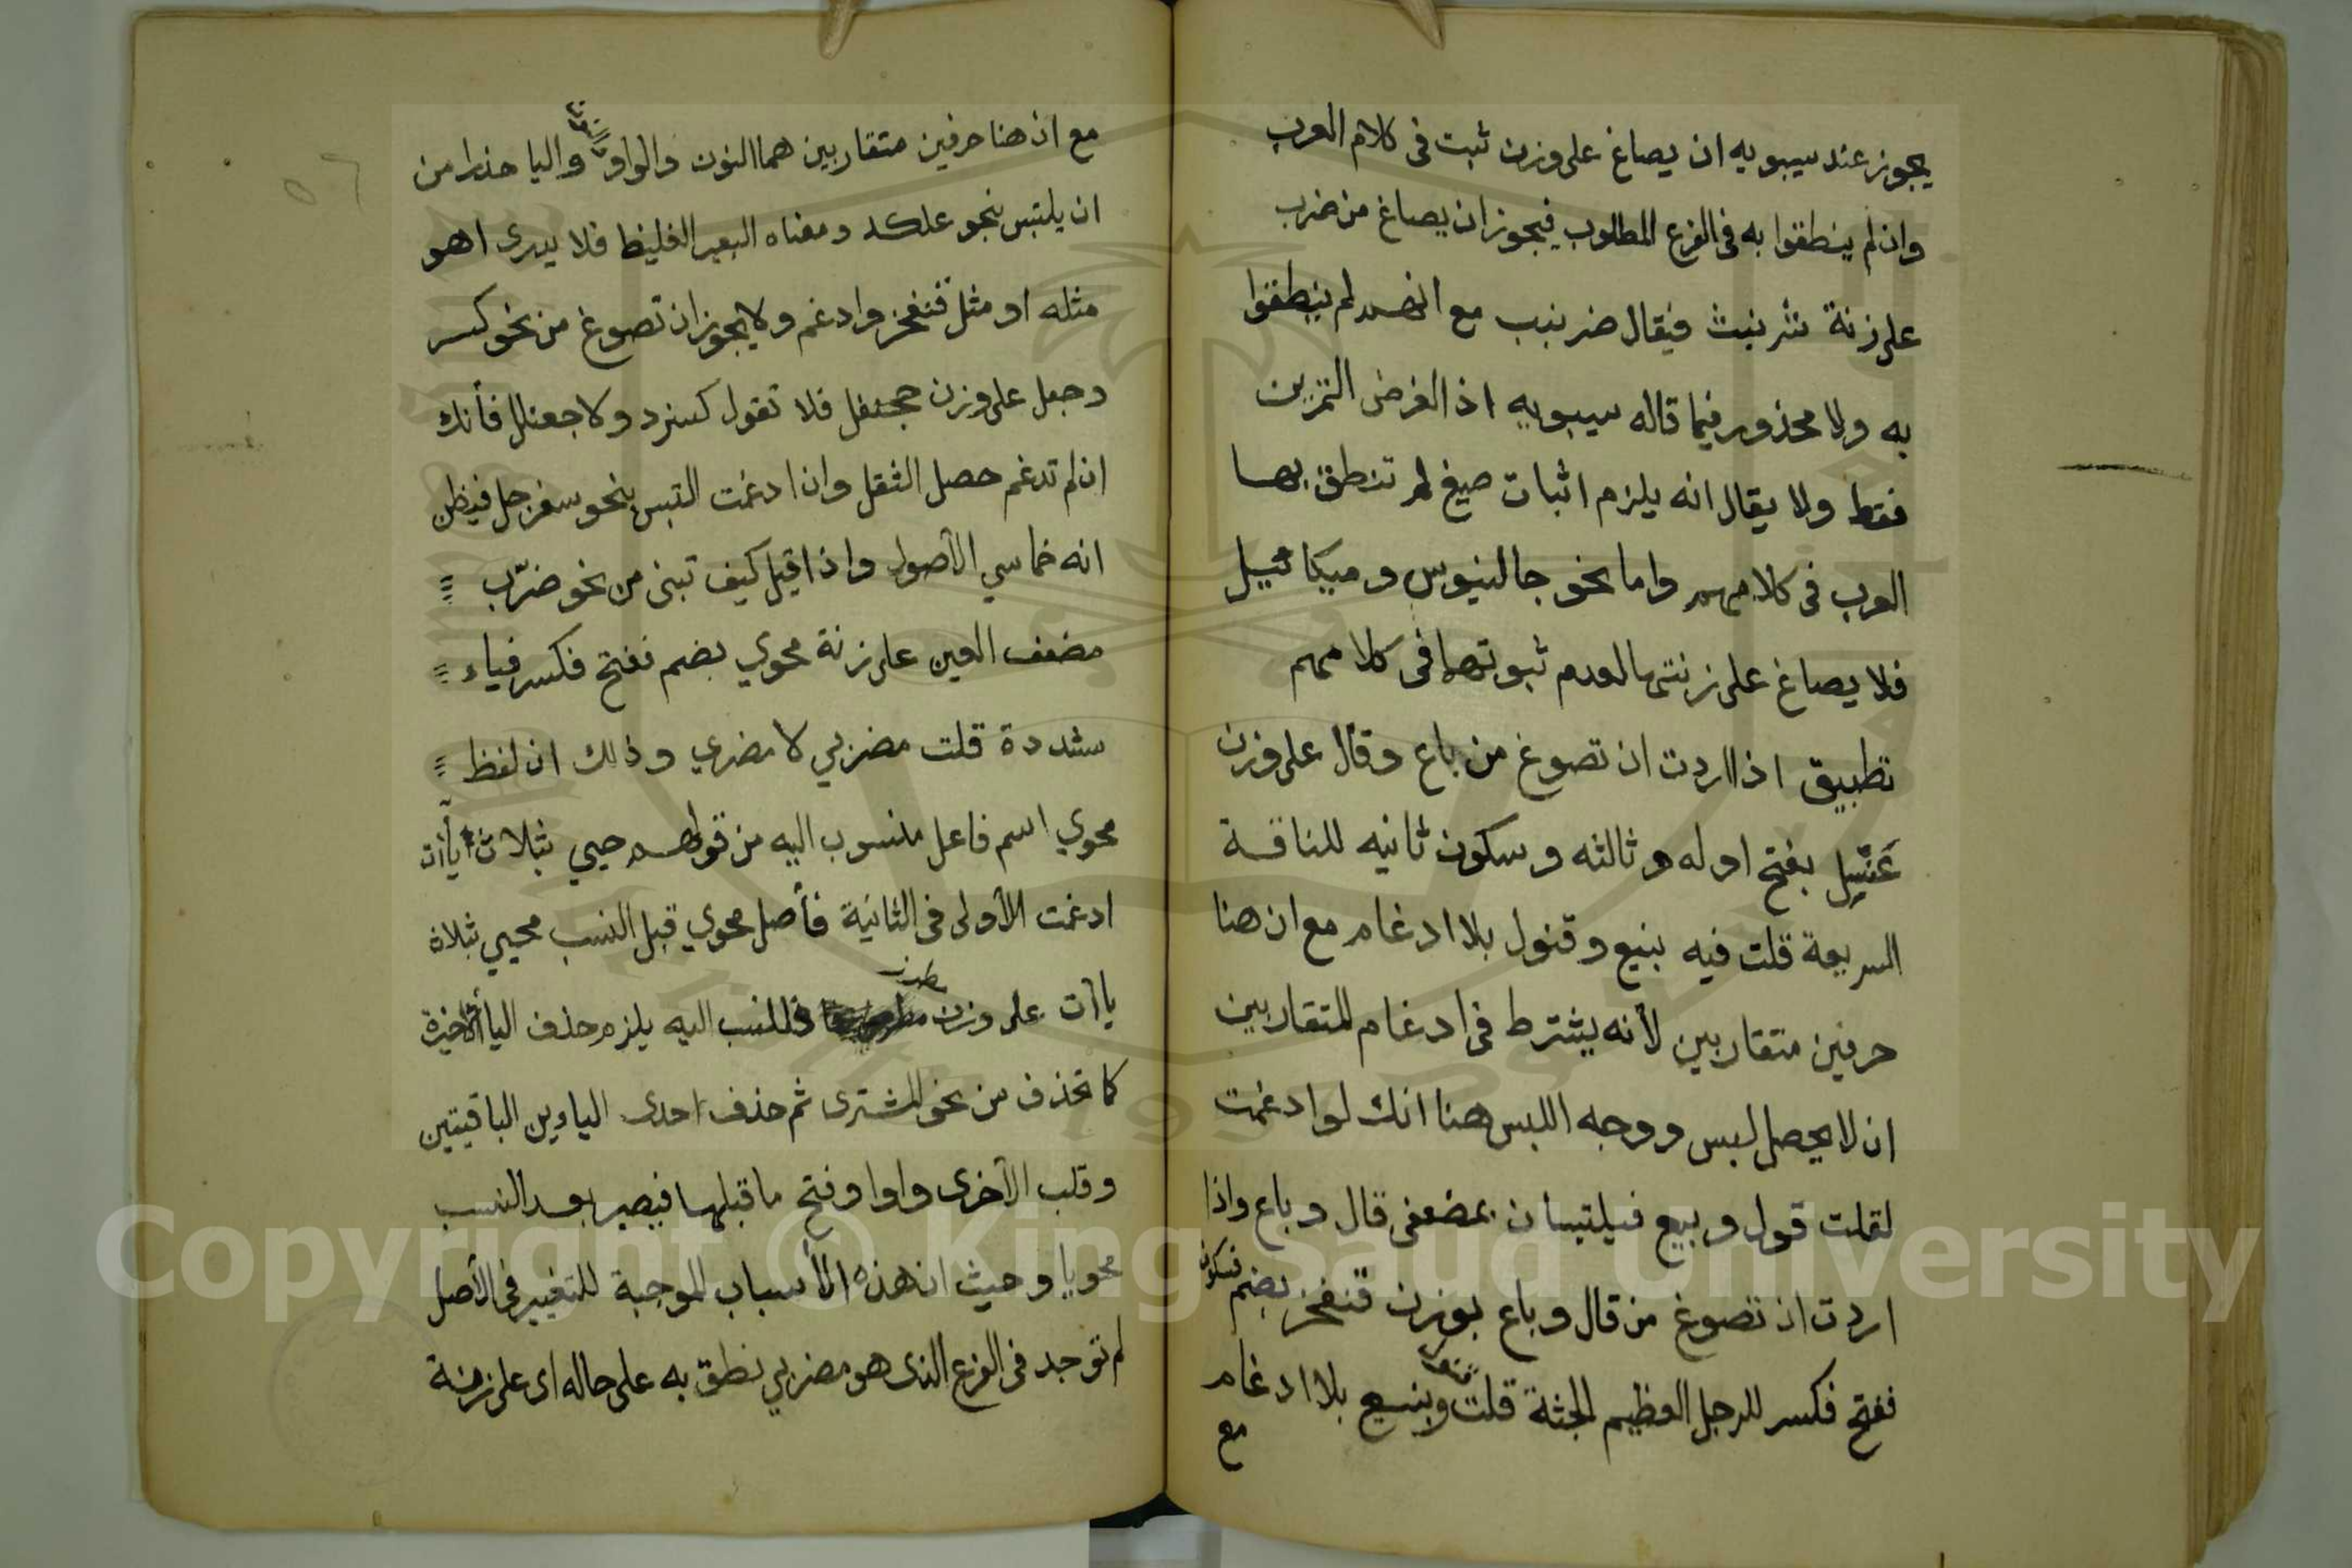 يجوز عند سيبويه ان يصاغ على وزن ثبت فى كلام العرب
وان لم ينطقوا به فى الفرع المطلوب فيجوز ان يصاغ من ضرب
على زنة شرنبث فيقال ضرنبب مع انهم لم ينطقوا
به ولا محذور فيما قاله سيبويه اذ الغرض التمرين
فقط ولا يقال انه يلزم اثبات صيغ لم تنطق بها
العرب فى كلامهم واما نحو جالنيوس وميكائيل
فلا يصاغ على زنتها لعدم ثبوتها فى كلامهم
تطبيق اذا اردت ان تصوغ من باع وقال على وزن
بفتح اوله وثالثه وسكون ثانيه للناقة
السريعة قلت فيه بنيع وقنول بلا ادغام مع ان هنا
حرفين متقاربين لأنه يشترط فى ادغام المتقاربين
ان لا يحصل لبس ووجه اللبس هنا انك لو ادغمت
لقلت قول وبيع فيلتبسان بمضعفى قال وباع واذا
اردت ان تصوغ من قال وباع بوزن قنفخر بضم فسكون
ففتح فكسر للرجل العظيم الجثة قلت وبنيع بلا ادغام
مع
مع ان هنا حرفين متقاربين هما النون والواو واليا حذرا من
ان يلتبس بنحو علكد ومعناه البعير الغليظ فلا يدرى اهو
مثله او مثل قنفخر وادغم ولا يجوز ان تصوغ من نحو كسر
وجعل على وزن جحنفل فلا تقول كسنرر ولا جعنلل فأنك
ان لم تدغم حصل الثقل وان ادغمت التبس بنحو سفرجل فيظن
انه خماسي الأصول واذا قيل كيف تبنى من نحو ضرّب
مضعف العين على زنة محوي بضم ففتح فكسر فياء
مشددة قلت مضربي لا مضري وذلك ان لفظ
محوي اسم فاعل منسوب اليه من قولهم حيي بثلاث يأات
ادغمت الأولى فى الثانية فأصل محوي قبل النسب محيي بثلاث
ياآت على وزن فللنسب اليه يلزم حذف اليا الأخيرة
كما تحذف من نحو المشترى ثم حذف احدى الياءين الباقيتين
وقلب الأخرى واوا وفتح ما قبلها فيصير بعد النسب
محويا وحيث ان هذه الأسباب الموجبة للتغيير فى الأصل
لم توجد فى الفرع الذى هو مضربي نطق به على حاله اى على زنة
Copyright © King Saud University